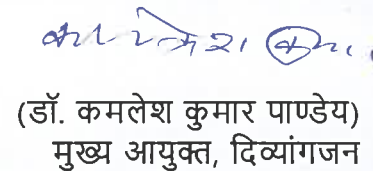 (डॉ. कमलेश कुमार पाण्डेय)
मुख्य आयुक्त, दिव्यांगजन